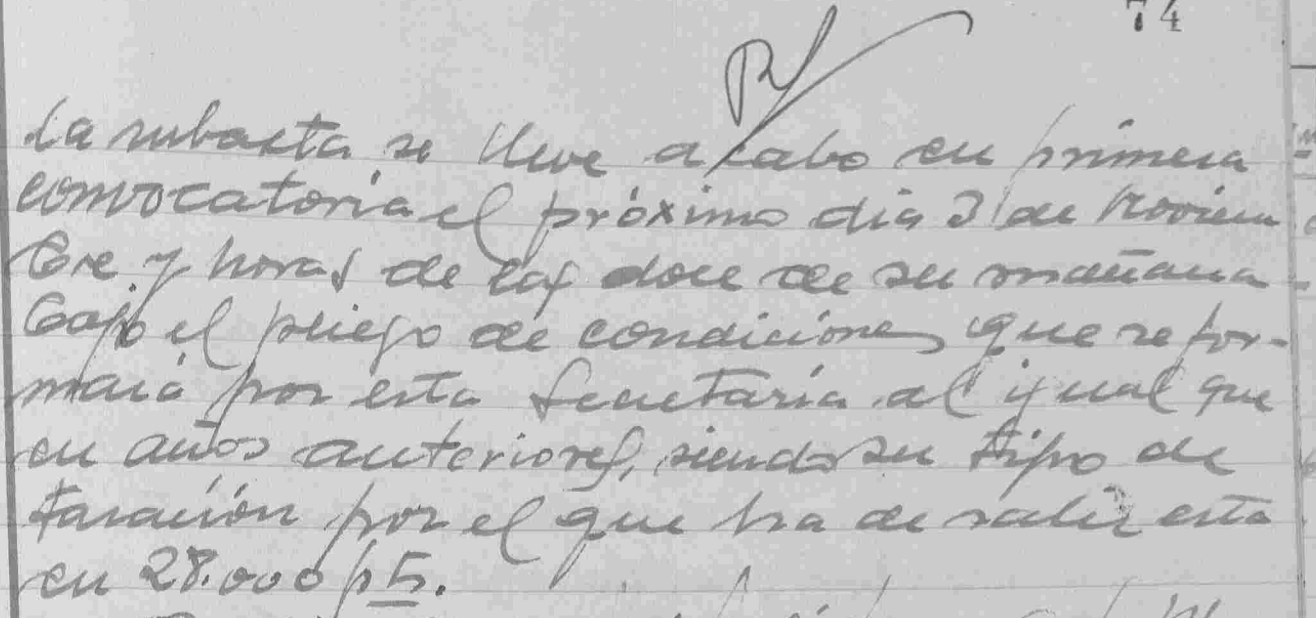 74
La subasta se lleve a cabo en primera
convocatoria el próximo dia 3 de Noviem
bre y horas de las doce de su mañana
bajo el pliego de condiciones que se for-
mará por esta Secretaría al igual que
en años anteriores, siendo su tipo de
tasación por el que ha de salir esta
en 28.000 pts.